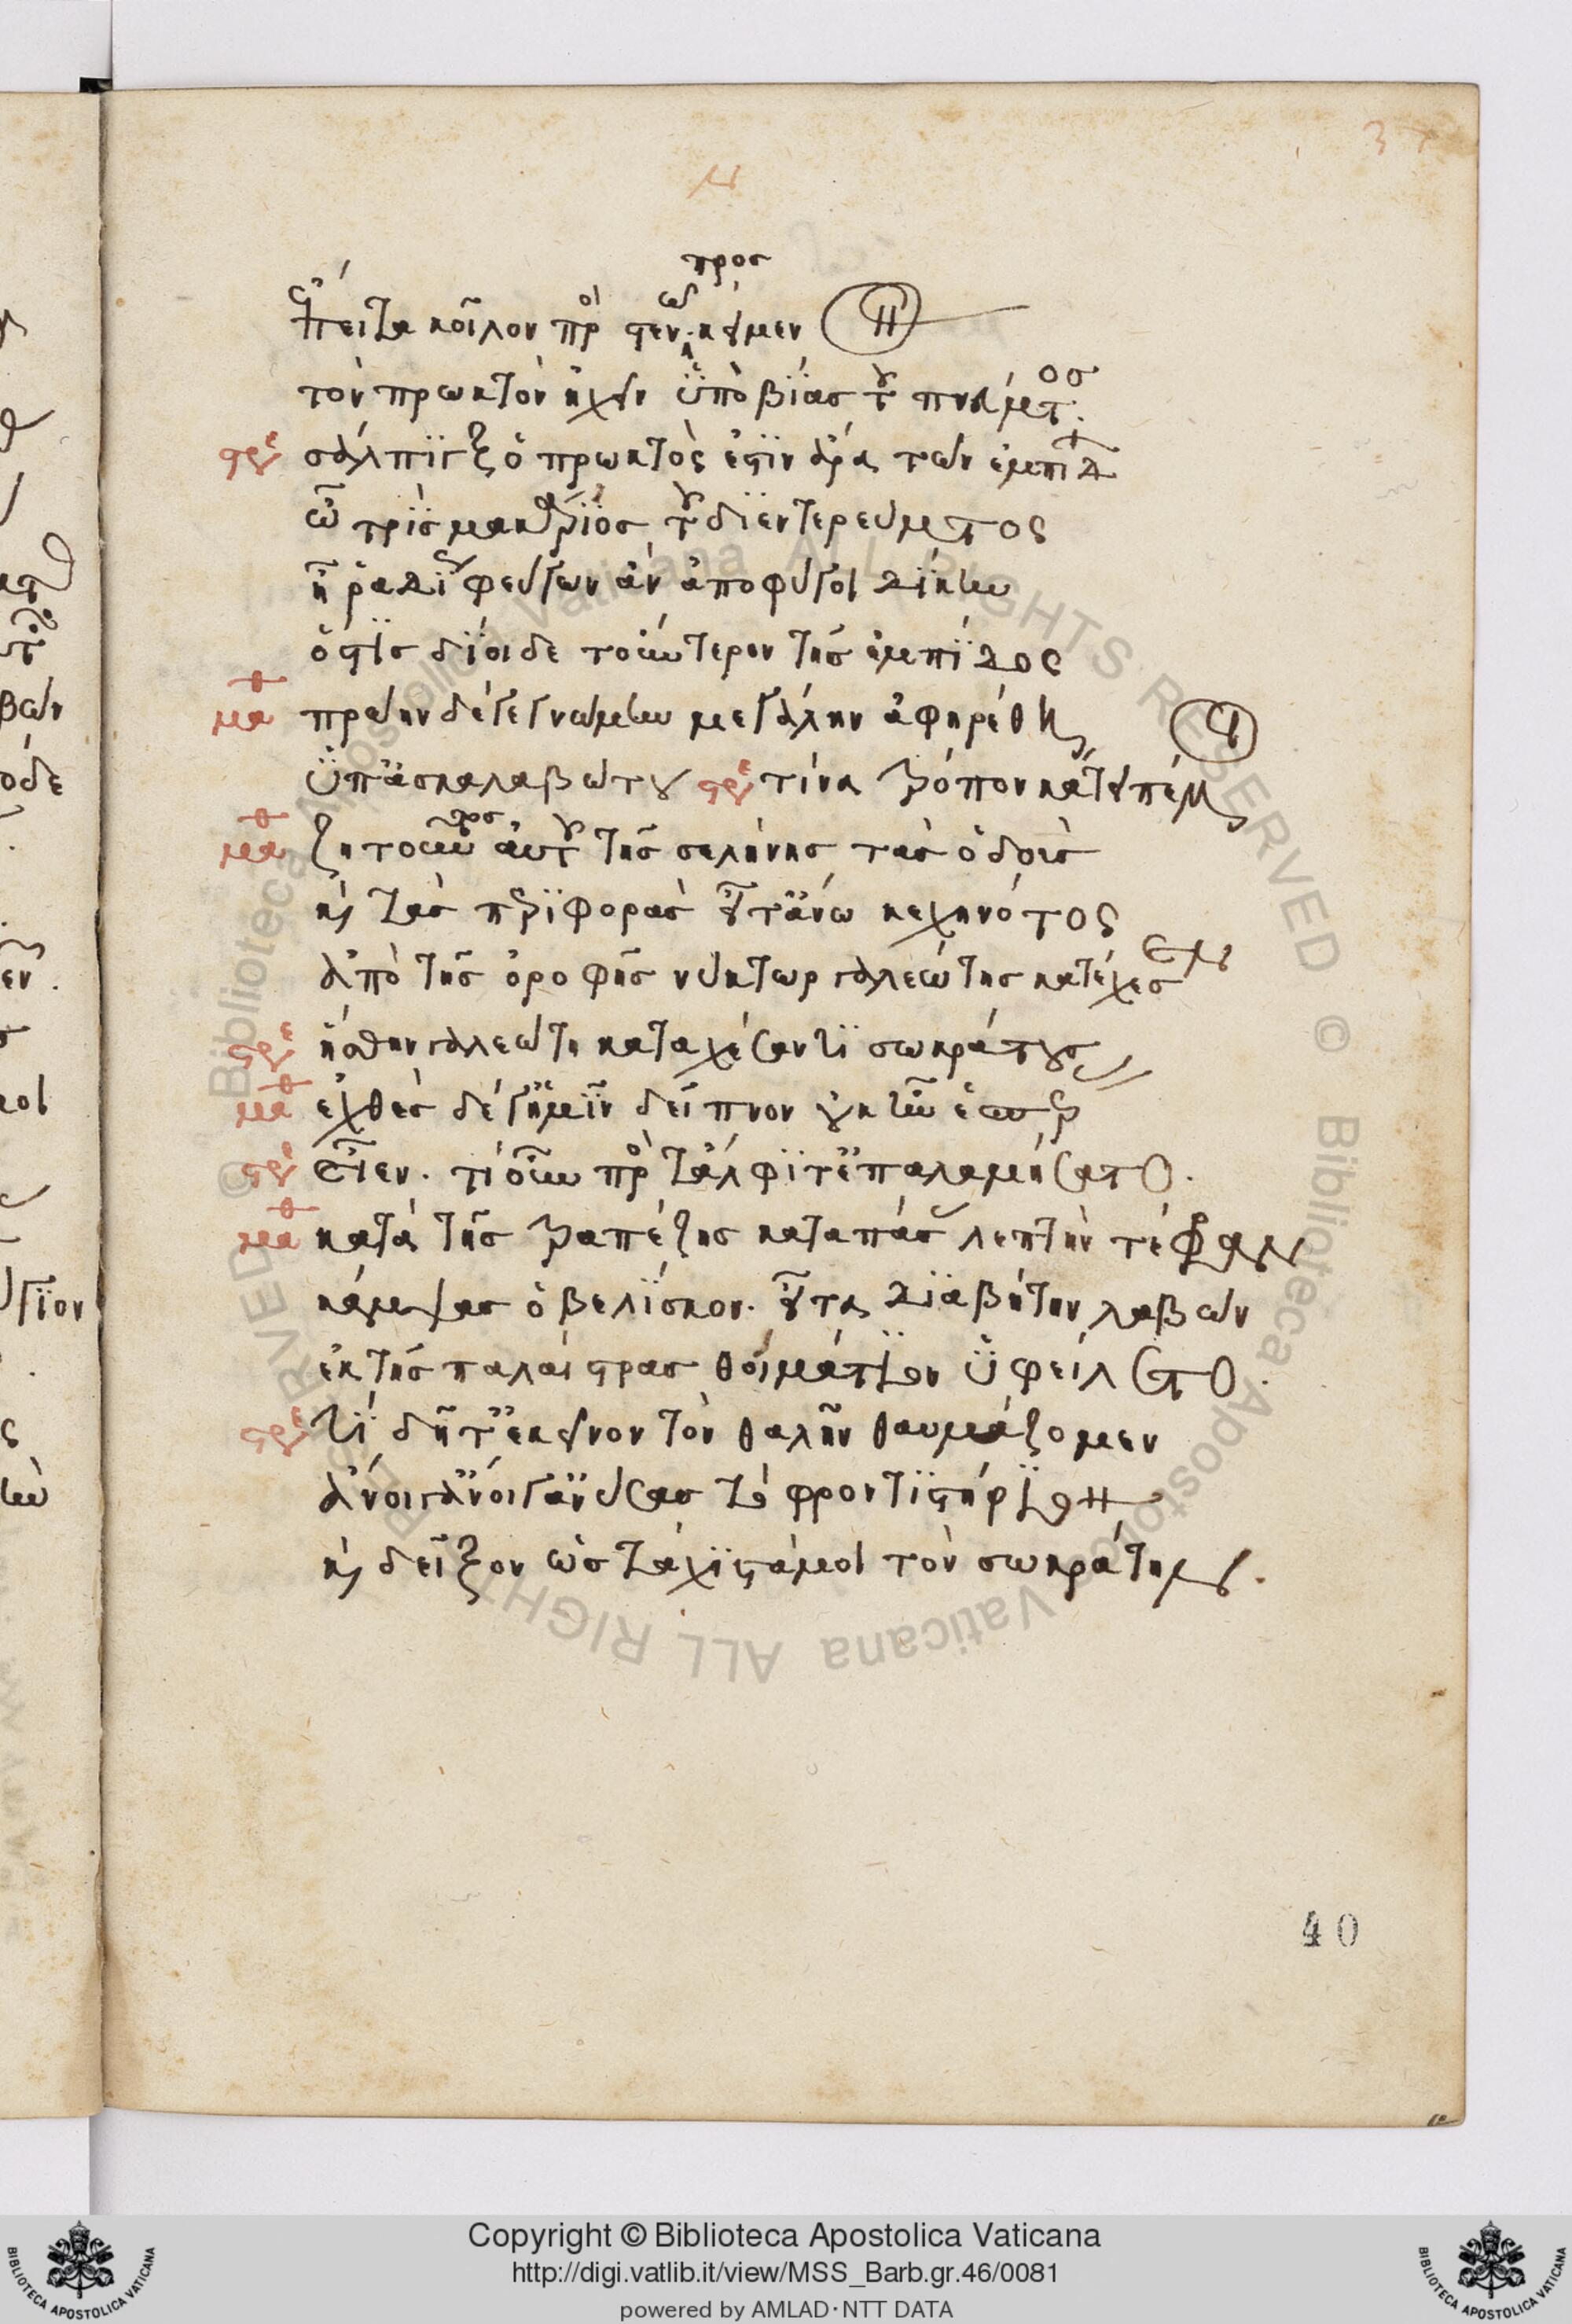 37
προσ
ἔπειτα κοῖλον πρὸ στενῶ κείμενον
τὸν πρωκτὸν ἠχεῖν ὑπὸ βίας τοῦ πνεύματος.
στρε σάλπιγξ ὁ πρωκτὸς ἐστὶν ἄρα τῶν ἐμπίδ
ὦ τρὶς μακάριος τοῦ διεντερεύματος
ἦ ῥαδίως φεύγων ἂν ἀποφύγοι δίκην
ὅστις δίοιδε τοὔντερον τῆς ἐμπίδος
μαθ πρώην δέ γε γνώμην μεγάλην ἀφηρέθη
ὑπ' ἀσκαλαβώτου στρε τίνα τρόπον κάτειπέ μοι
μαθ ζητοῦντος αὐτοῦ τῆς σελήνης τὰς ὁδοὺς
καὶ τὰς περιφορὰς εἶτ' ἄνω κεχηνότος
ἀπὸ τῆς ὀροφῆς νύκτωρ γαλεώτης κατέχεσεν
στρε ἥσθην γαλεώτη καταχέσαντι σωκράτους
μαθ ἐχθὲς δέ γ' ἡμῖν δεῖπνον οὐκ ἦν ἑσπέρ
στρε εἶεν. τί οὖν πρὸς τἄλφιτ' ἐπαλαμήσατο.
μαθ κατὰ τῆς τραπέζης καταπάσας λεπτὴν τέφραν
κάμψας ὀβελίσκον. εἶτα διαβήτην λαβὼν
ἐκ τῆς παλαίστρας θοἰμάτιον ὑφείλετο.
στρε τί δῆτ' ἐκεῖνον τὸν θαλῆν θαυμάζομεν
ἄνοιγ' ἄνοιγ' ἀνύσας τὸ φροντιστήριον
καὶ δεῖξον ὡς τάχιστά μοι τὸν σωκράτην.
40
© Biblioteca Apostolica Vaticana ALL RIGHTS RESERVED © Biblioteca Apostolica Vaticana ALL RIGHTS RESERVED
Copyright © Biblioteca Apostolica Vaticana
http://digi.vatlib.it/view/MSS_Barb.gr.46/0081
powered by AMLAD·NTT DATA
BIBLIOTECA APOSTOLICA VATICANA
BIBLIOTECA APOSTOLICA VATICANA